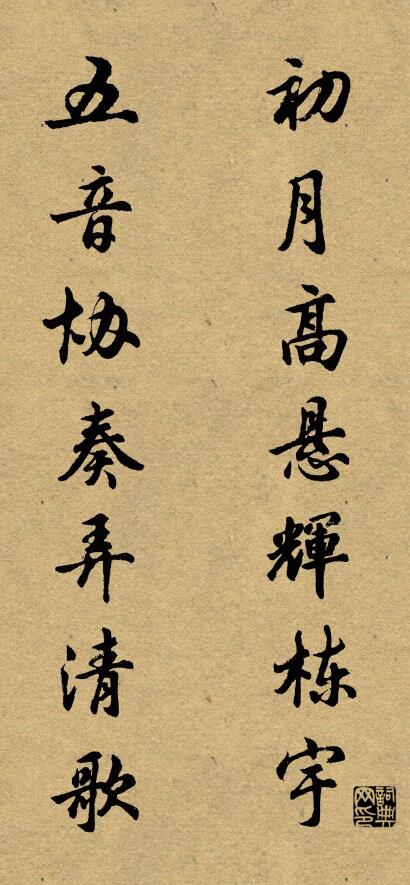 初月高悬輝栋宇
五音协奏弄清歌
詞典网印